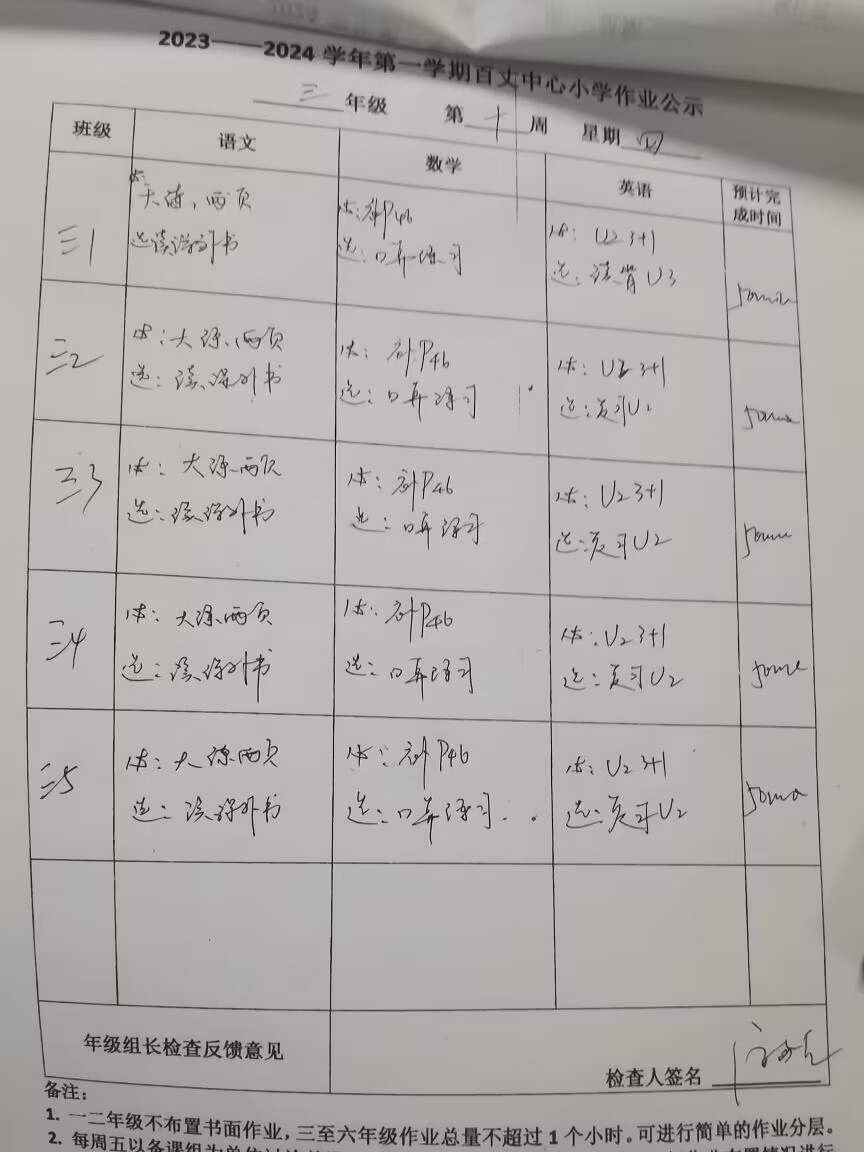 2023——2024 学年第一学期百丈中心小学作业公示
三 年级 第 十 周 星期 四
班级 语文 数学 英语 预计完成时间
三1
必: 大练, 两页
选读课外书
必: 补P46
选: 口算练习
必: U2 3+1
选: 读背U3
50min
三2
必: 大练、两页
选: 读课外书
必: 补P46
选: 口算练习
必: U2 3+1
选: 复习U2
50min
三3
必: 大练两页
选: 读课外书
必: 补P46
选: 口算练习
必: U2 3+1
选: 复习U2
50min
三4
必: 大练两页
选: 读课外书
必: 补P46
选: 口算练习
必: U2 3+1
选: 复习U2
50min
三5
必: 大练两页
选: 读课外书
必: 补P46
选: 口算练习
必: U2 3+1
选: 复习U2
50min
年级组长检查反馈意见
检查人签名
备注:
1. 一二年级不布置书面作业, 三至六年级作业总量不超过 1 个小时。可进行简单的作业分层。
2. 每周五以备课组为单位